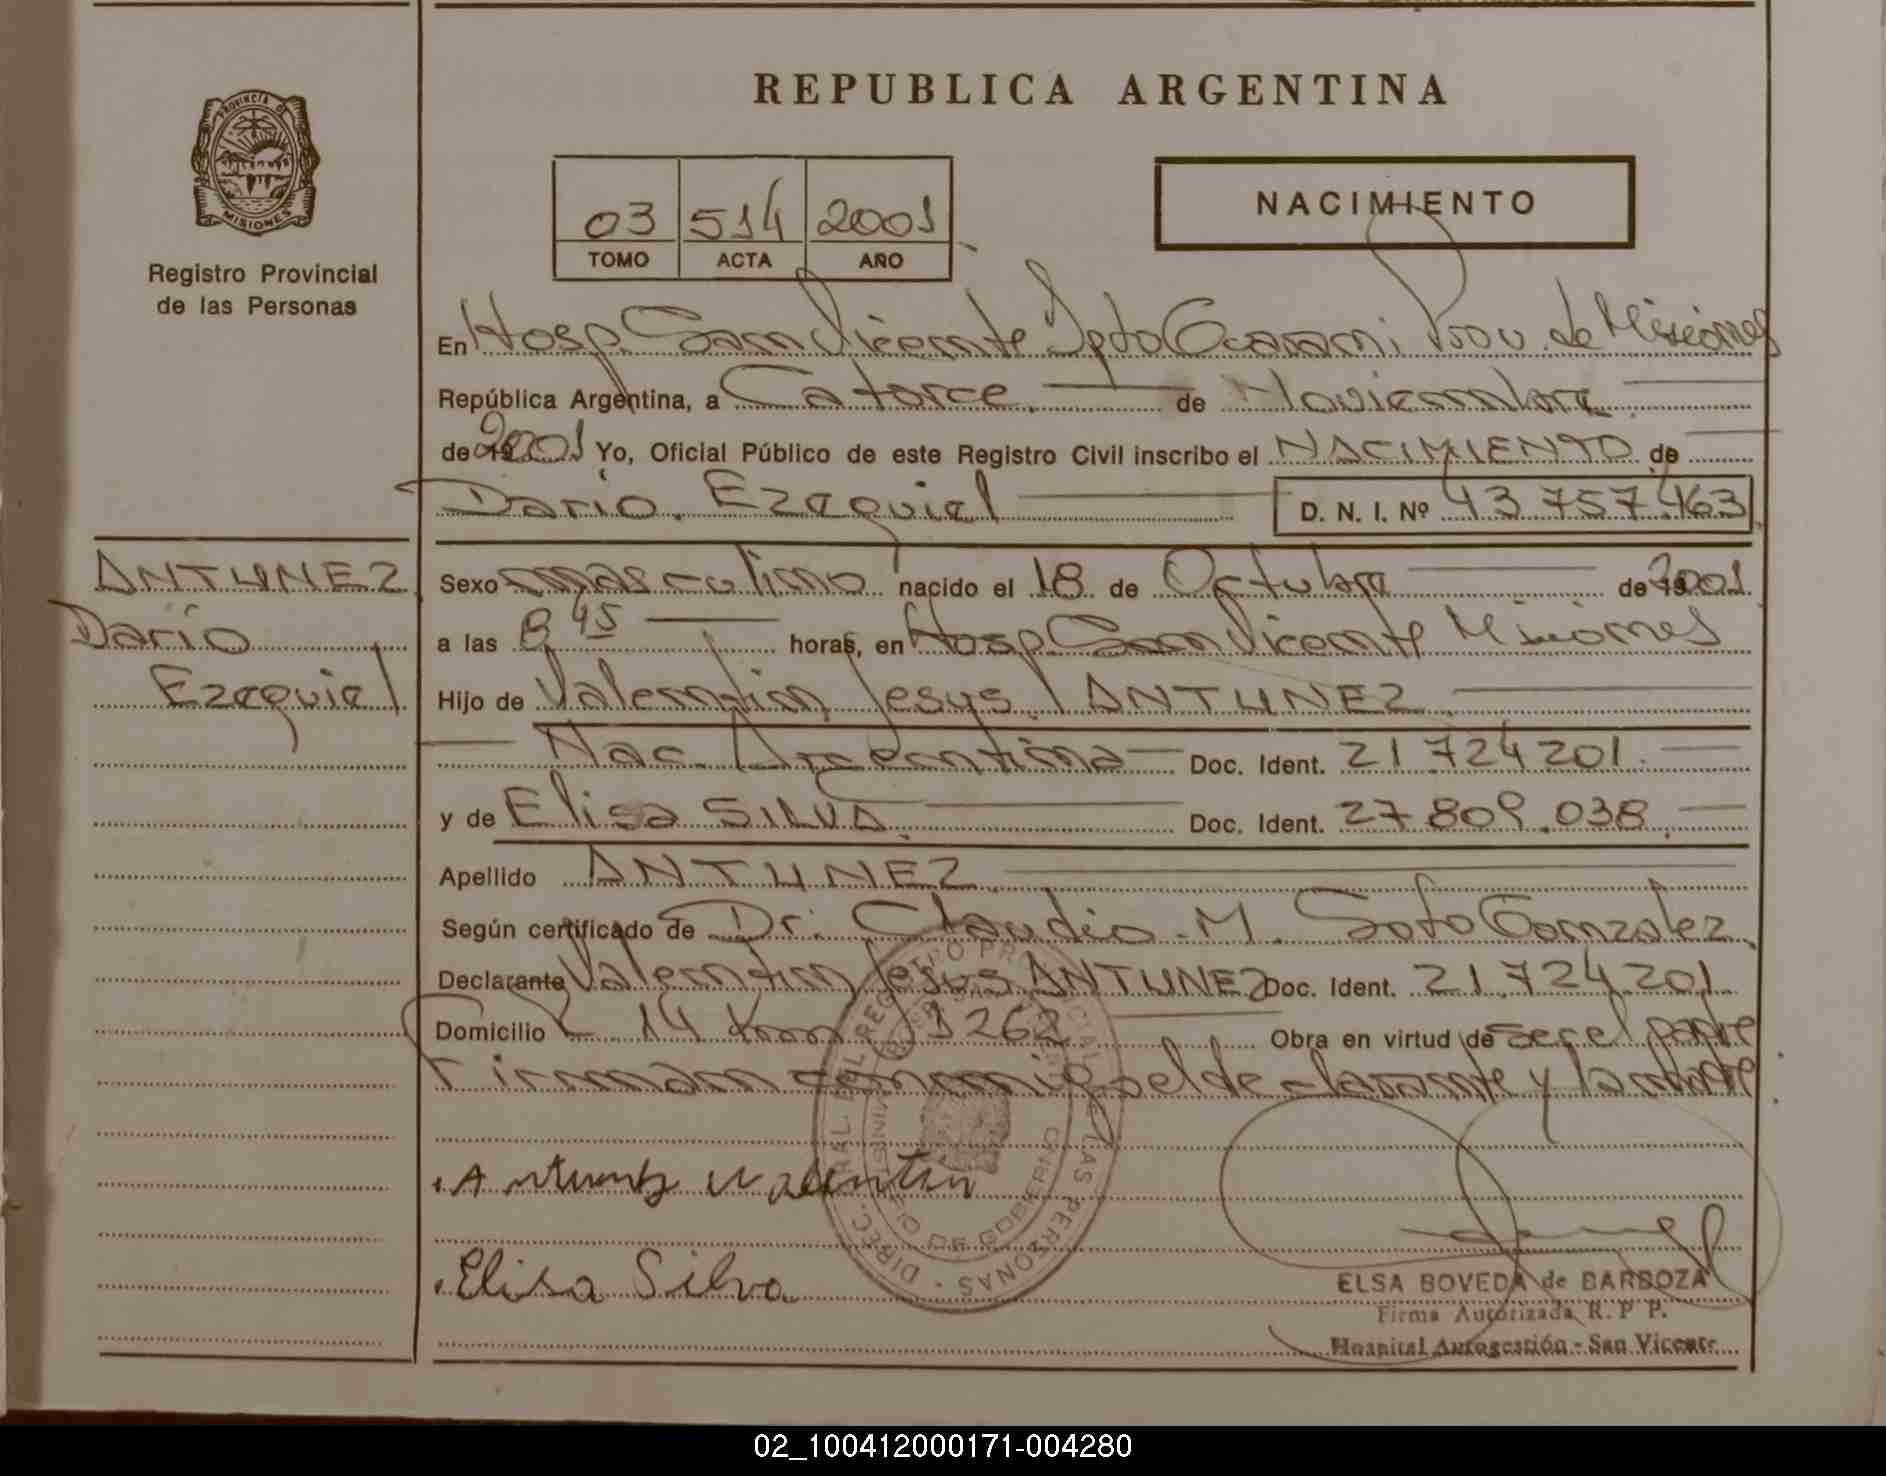 REPUBLICA ARGENTINA
PROVINCIA DE
MISIONES
Registro Provincial
de las Personas
03 514 2001
TOMO ACTA AÑO
NACIMIENTO
En Hosp. San Vicente Dpto Guarani Prov. de Misiones
República Argentina, a Catorce de Noviembre
de 2001 Yo, Oficial Público de este Registro Civil inscribo el NACIMIENTO de
Dario. Ezequiel D. N. I. Nº 43.757.463
ANTUNEZ
Dario
Ezequiel
Sexo masculino nacido el 18 de Octubre de 2001.
a las 8 45 horas, en Hosp. San Vicente Misiones
Hijo de Valentin Jesus. ANTUNEZ
Nac. Argentina Doc. Ident. 21.724.201.
y de Elisa SILVA. Doc. Ident. 27.809.038.
Apellido ANTUNEZ
Según certificado de Dr. Claudio M. Soto Gonzalez.
Declarante Valentin Jesus ANTUNEZ Doc. Ident. 21.724.201
Domicilio 14 km 1262 Obra en virtud de ser el padre
Firman conmigo el declarante y la madre
Antunez Valentin
Elisa Silva
DIREC. GRAL. DEL REGISTRO PROVINCIAL DE LAS PERSONAS
MINISTERIO DE GOBIERNO
ELSA BOVEDA de BARBOZA
Firma Autorizada R. P. P.
Hospital Autogestión - San Vicente
02_100412000171-004280